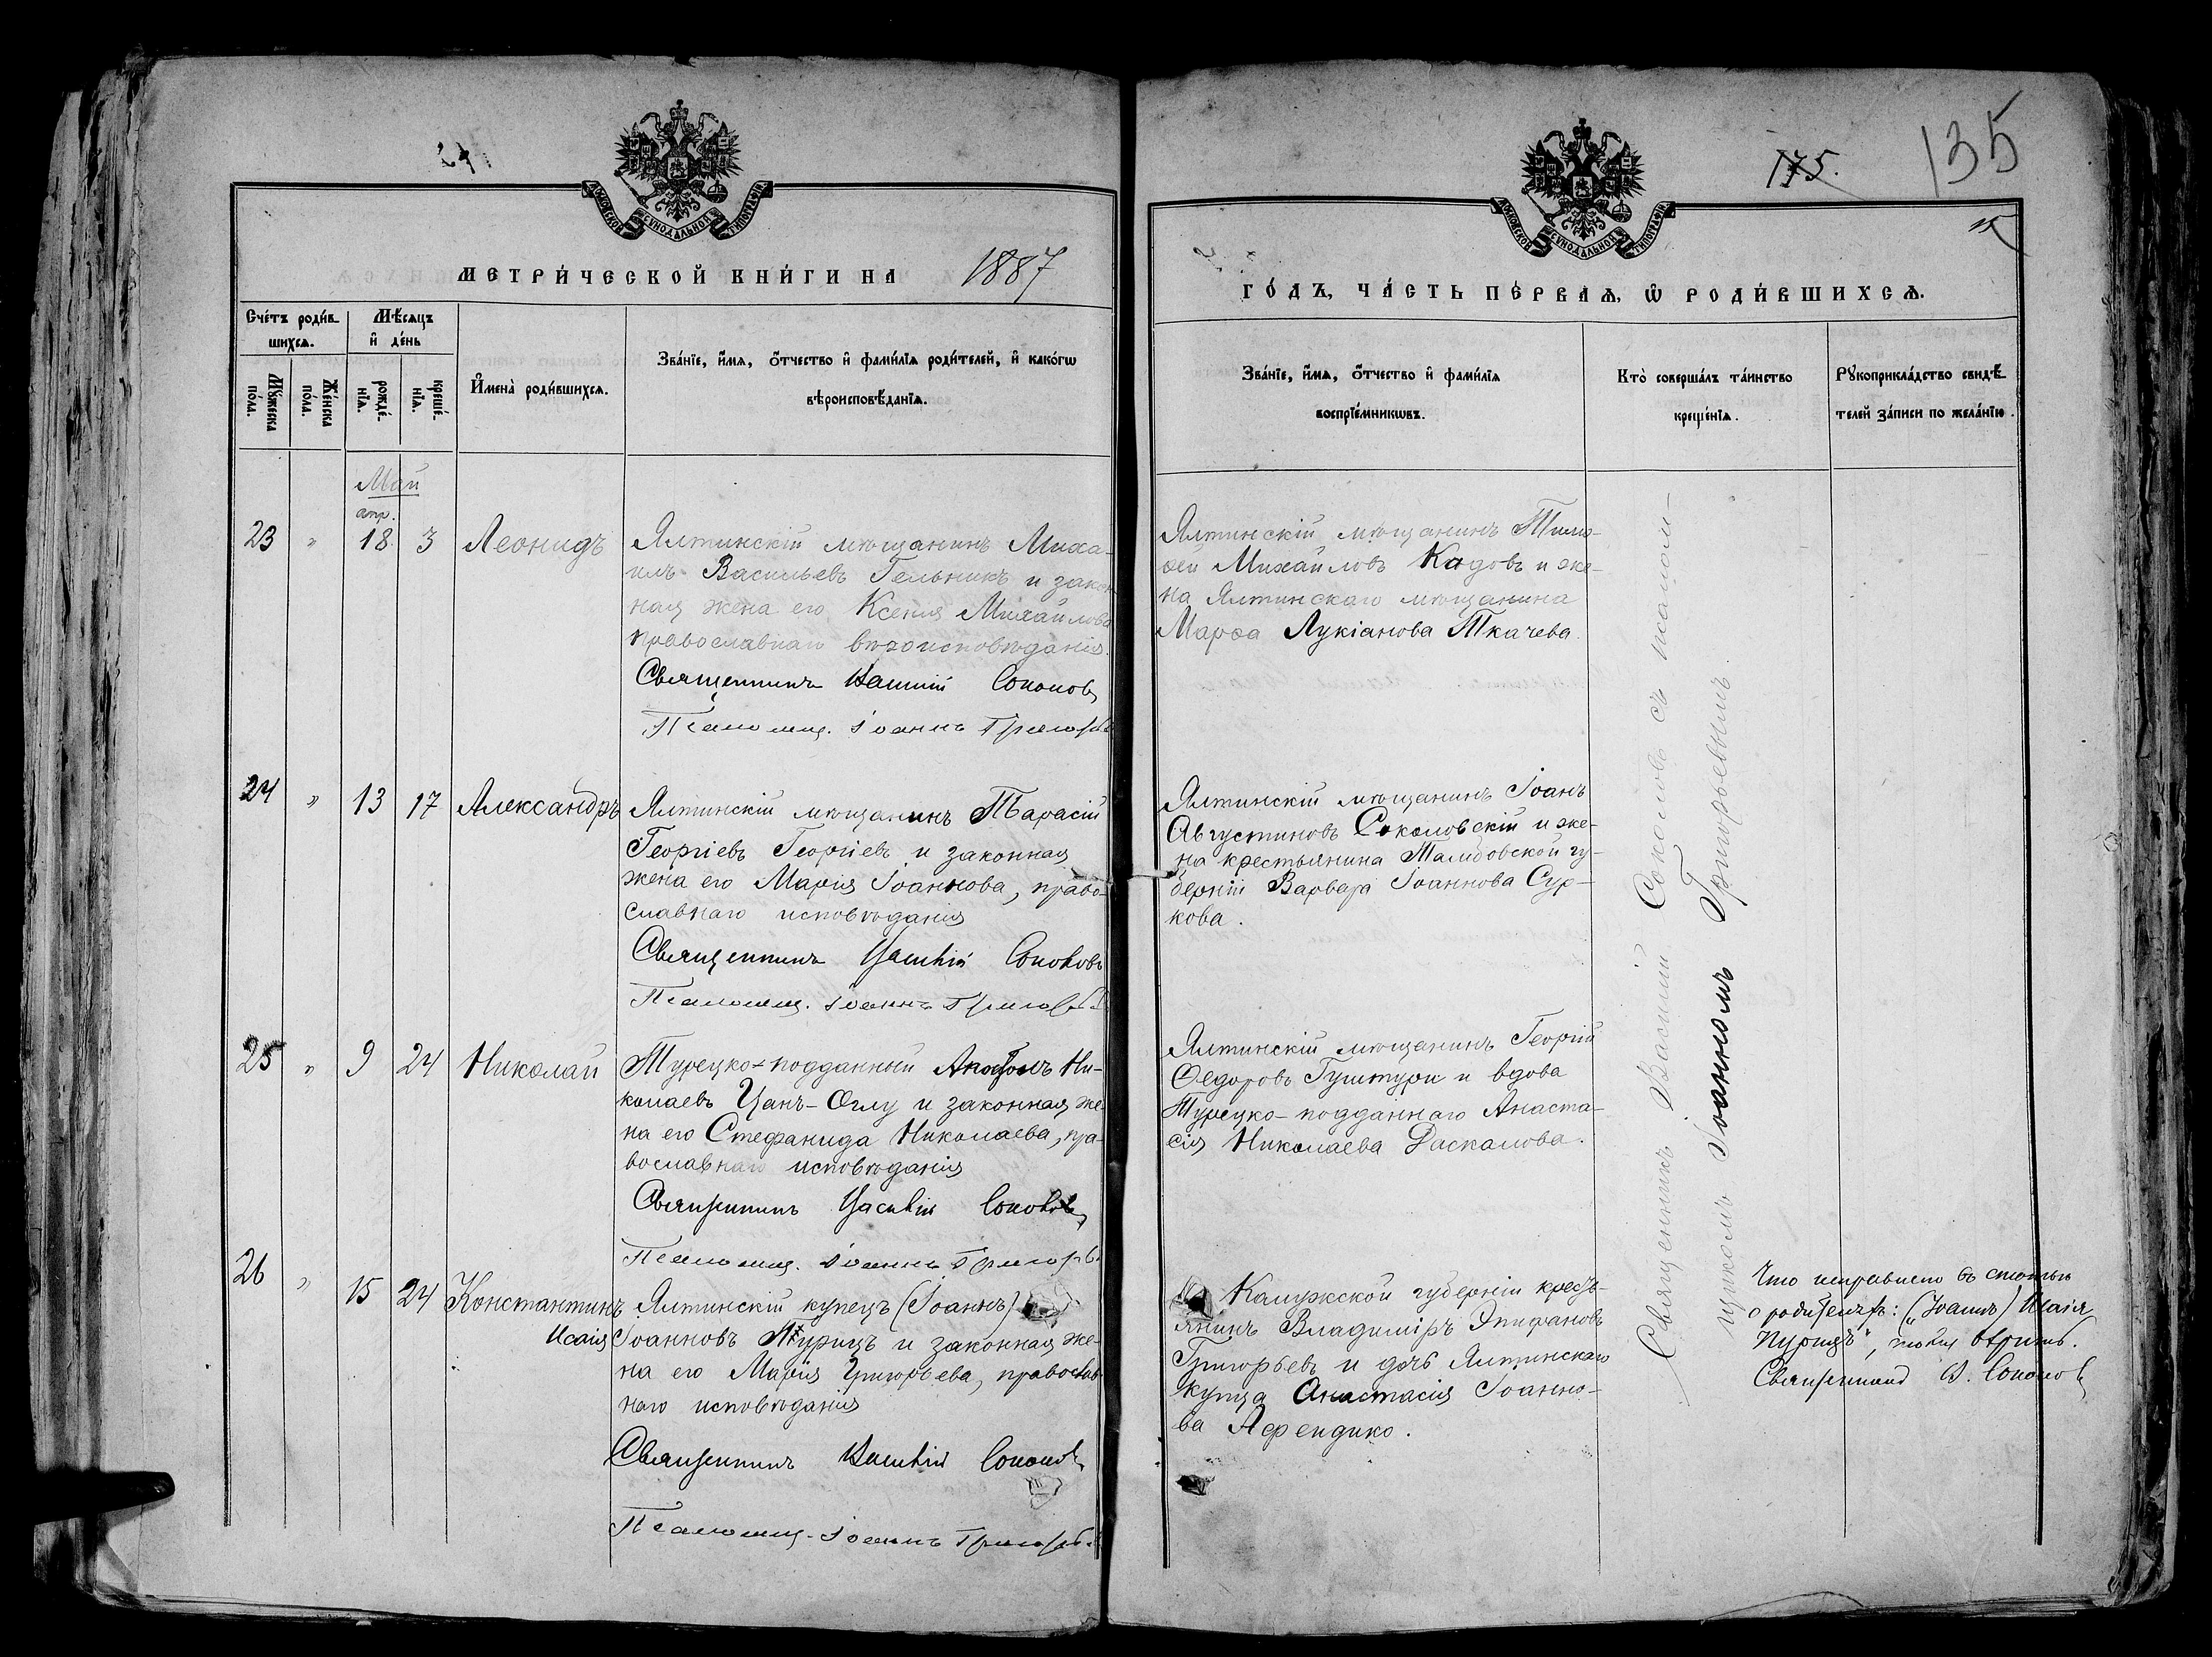 МОСКОВСКОЙ СУНОДАЛЬНОЙ ТИПОГРАФІИ
МЕТРИ́ЧЕСКОЙ КНИ́ГИ НА 1887
Сче́тъ роди́в-
шихсѧ.
Мѣ́сѧцъ
и҆ де́нь
Мꙋ́жеска
по́ла.
Же́нска
по́ла.
рожде́-
нїѧ.
креще́-
нїѧ.
И҆мена̀ роди́вшихсѧ.
Зва́нїе, и҆́мѧ, ѻ҆́тчество и҆ фами́лїѧ роди́телей, и҆ како́гѡ
вѣроисповѣ́данїѧ.
Май
апр.
23 " 18. 3 Леонидъ
Ялтинскій мѣщанинъ Миха-
илъ Васильевъ Гельникъ и закон
ная жена его Ксенія Михайлова
православнаго вѣроисповѣданія.
Священникъ Василій Соколовъ
Псаломщ. Іоаннъ Григорьевъ
24 " 13 17 Александръ
Ялтинскій мѣщанинъ Тарасій
Георгіевъ Георгіевъ и законная
жена его Марія Іоаннова, право-
славнаго исповѣданія
Священникъ Василій Соколовъ
Псаломщ. Іоаннъ Григорьевъ
25 " 9 24 Николай
Турецко-подданный Ни-
колаевъ Цанъ-Оглу и законная же-
на его Стефанида Николаева, пра-
вославнаго исповѣданія
Священникъ Василій Соколовъ
Псаломщ. Іоаннъ Григорьевъ
26 " 15 24 Константинъ
Исаія
Ялтинскій купецъ (Іоаннъ)
Іоанновъ Пурицъ и законная же-
на его Марія Григорьева, православ
наго исповѣданія
Священникъ Василій Соколовъ
Псаломщ. Іоаннъ Григорьевъ
175.
135
МОСКОВСКОЙ СУНОДАЛЬНОЙ ТИПОГРАФІИ
ГО́ДЪ, ЧА́СТЬ ПЕ́РВАѦ, Ѡ҆ РОДИ́ВШИХСѦ.
Зва́нїе, и҆́мѧ, ѻ҆́тчество и҆ фами́лїѧ
воспрїе́мникѡвъ.
Кто̀ соверша́лъ та́инство
креще́нїѧ.
Рꙋкоприкла́дство свидѣ́-
телей за́писи по жела́нїю.
Ялтинскій мѣщанинъ Тимо-
ѳей Михайловъ Кадовъ и же-
на Ялтинскаго мѣщанина
Марѳа Лукіанова Ткачева.
Ялтинскій мѣщанинъ Іоанъ
Августиновъ Соколовскій и же-
на крестьянина Тамбовской гу-
берніи Варвара Іоаннова Сур-
кова.
Ялтинскій мѣщанинъ Георгій
Ѳедоровъ Гуштури и вдова
Турецко-подданнаго Анаста-
сія Николаева Даскалова.
Калужской губерніи кресть-
янинъ Владиміръ Эпифановъ
Григорьевъ и дочь Ялтинскаго
купца Анастасія Іоанно-
ва Афендико.
Священникъ Василій Соколовъ съ псалом-
щикомъ Іоанномъ Григорьевымъ.
Что исправлено въ статьи
о родителяхъ: („Іоаннъ) Исаія
Пурицъ",
Священникъ В. Соколовъ